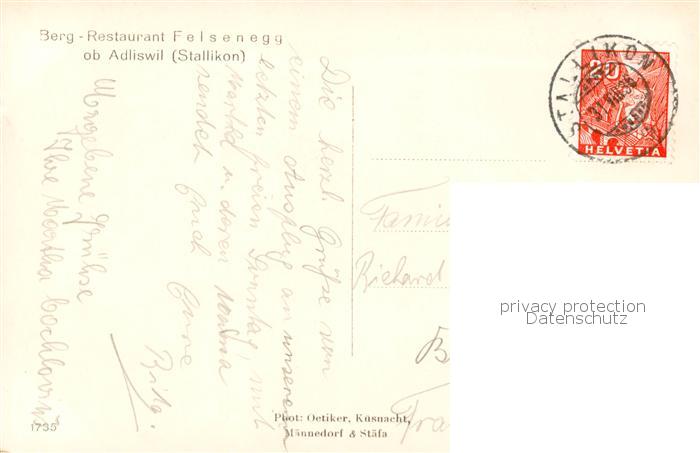 Berg-Restaurant Felsenegg
ob Adliswil (Stallikon)
Die herzl. Grüsse von
einem Ausflug an unserem
letzten freien Sonntag, mit
Martha u. deren Mama
sendet Euch Eure
Ergebene Grüsse
Ihre Martha
STALLIKON
20
HELVETIA
Famil
Richard
B
Fra
privacy protection
Datenschutz
Phot: Oetiker, Küsnacht,
Männedorf & Stäfa
1735